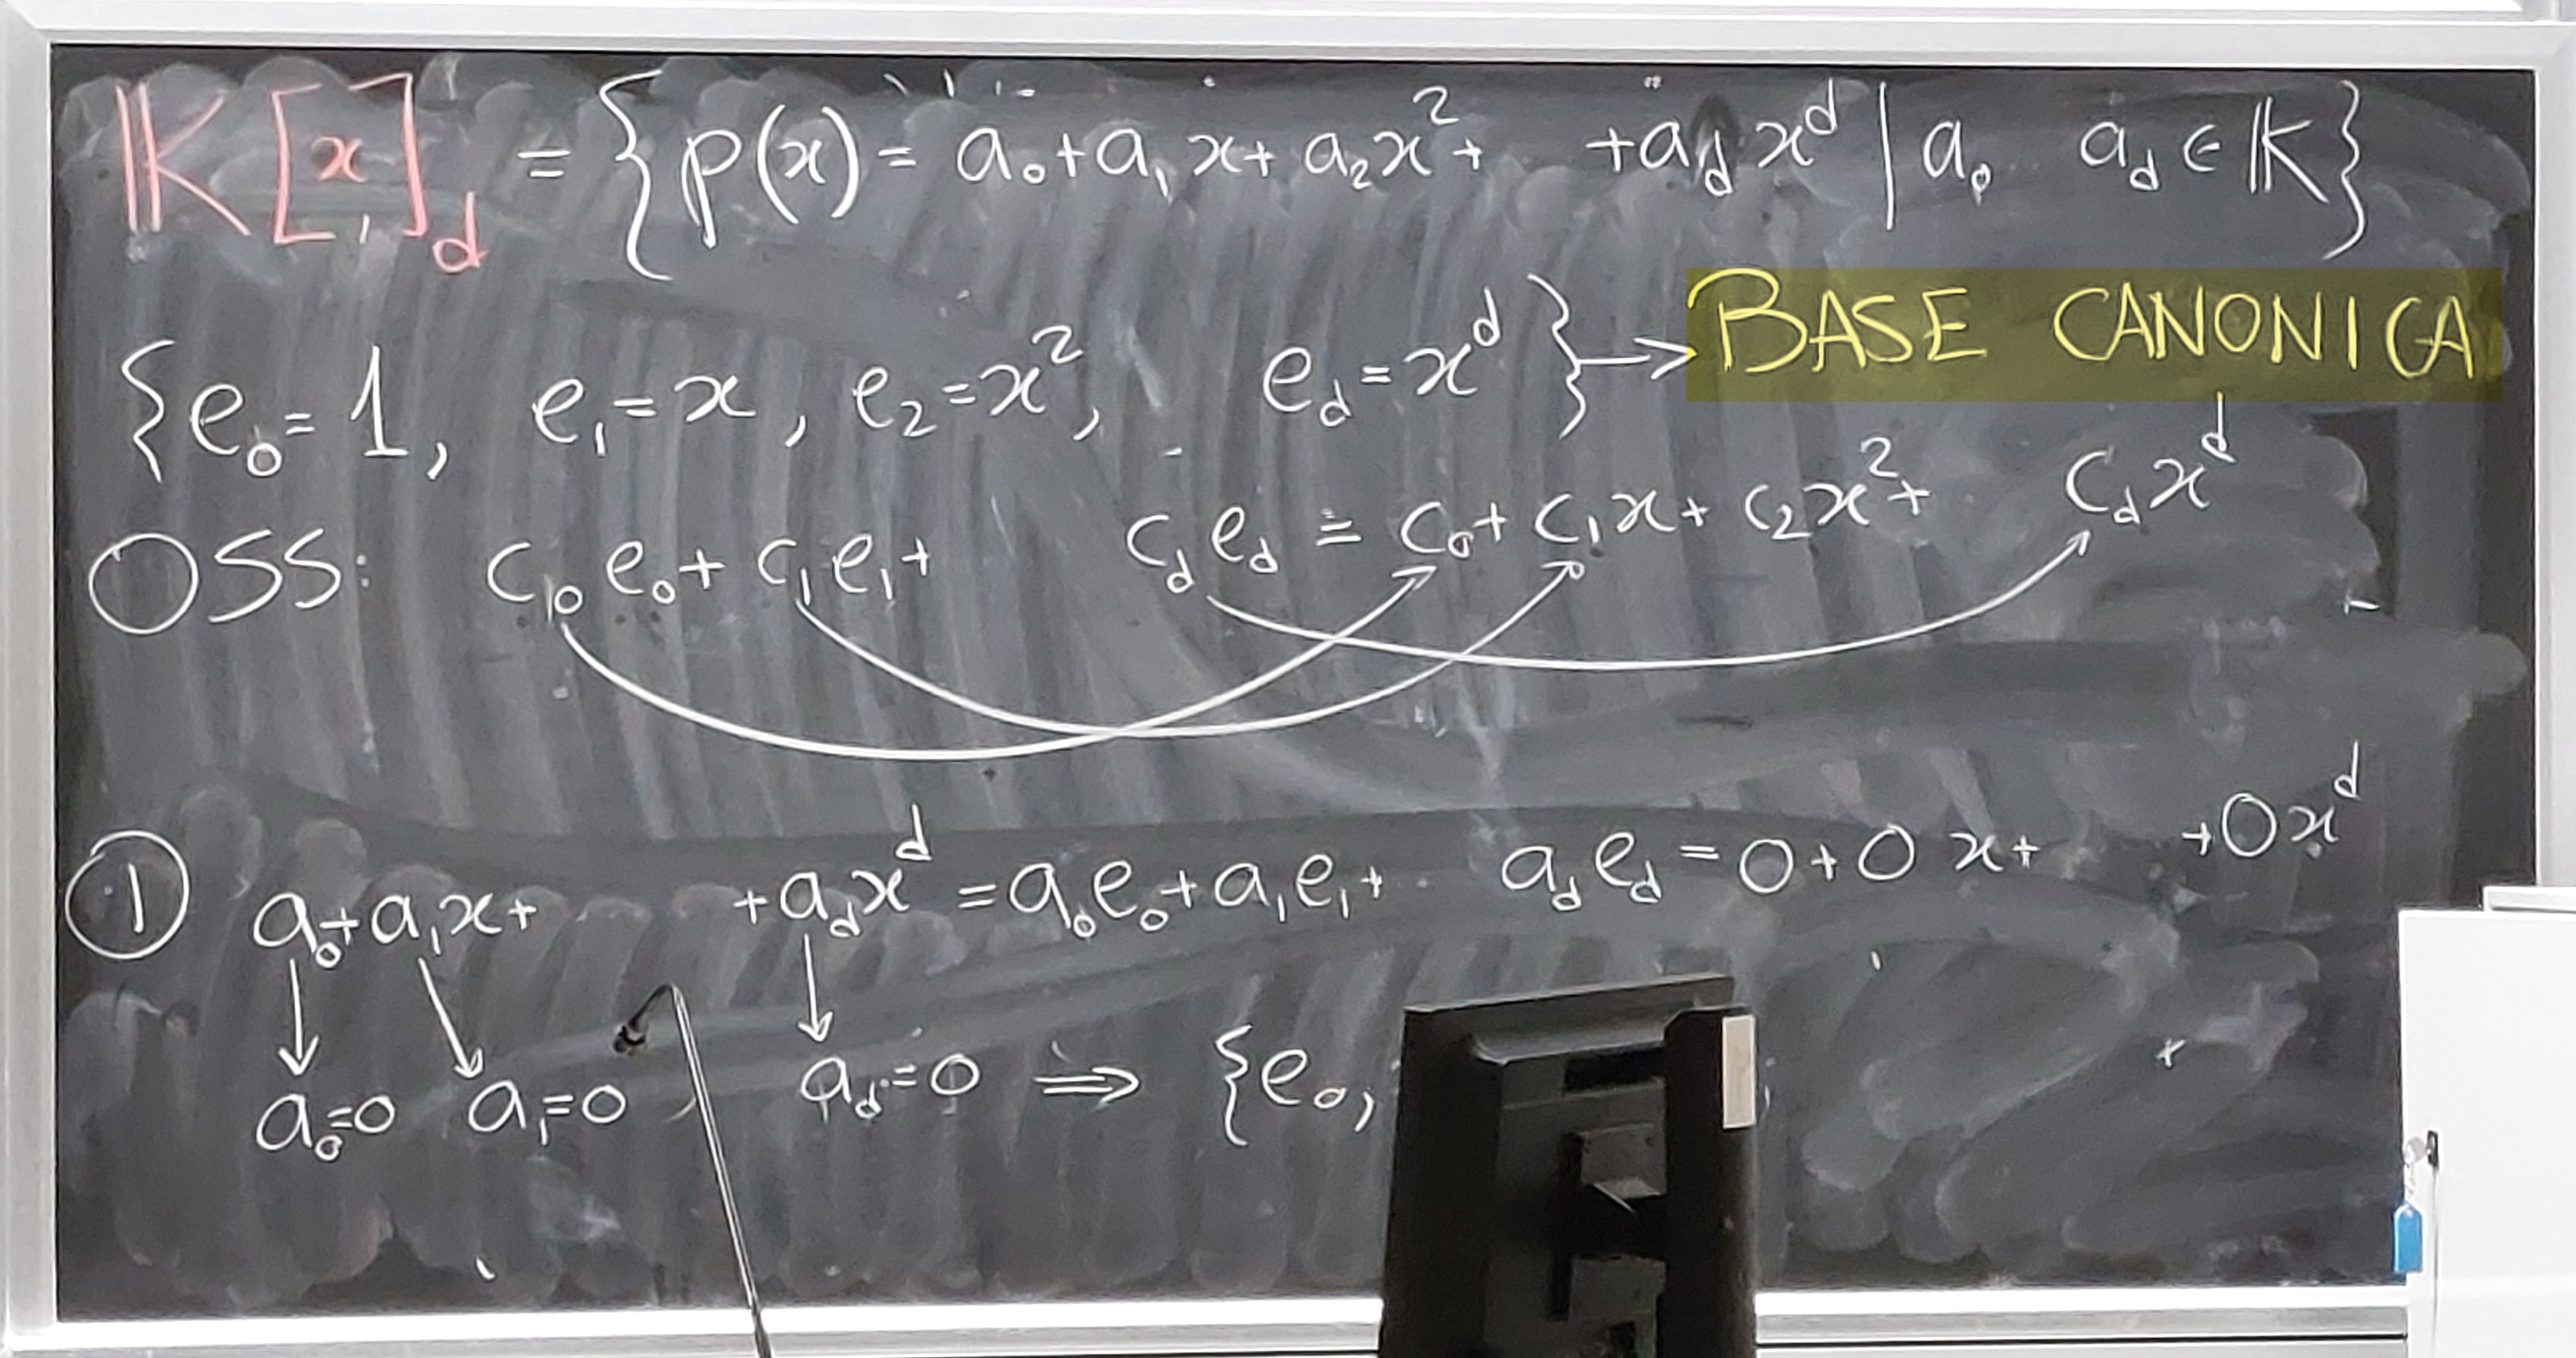 𝕂[x]_d = { p(x) = a₀ + a₁x + a₂x² + + a_d x^d | a₀ a_d ∈ 𝕂 }
{ e₀ = 1, e₁ = x, e₂ = x², e_d = x^d } → BASE CANONICA
OSS: c₀e₀ + c₁e₁ + c_d e_d = c₀ + c₁x + c₂x² + c_d x^d
① a₀ + a₁x + + a_d x^d = a₀e₀ + a₁e₁ + a_d e_d = 0 + 0x + + 0x^d
a₀ = 0 a₁ = 0 a_d = 0 ⟹ { e₀,